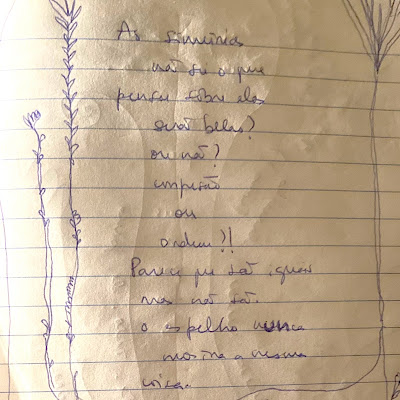 As simetrias
não sei o que
pensar sobre elas
será belo?
ou não?
impressão
ou
ordem?!!
Parece que são iguais
mas não são.
o espelho nunca
mostra a mesma
coisa.